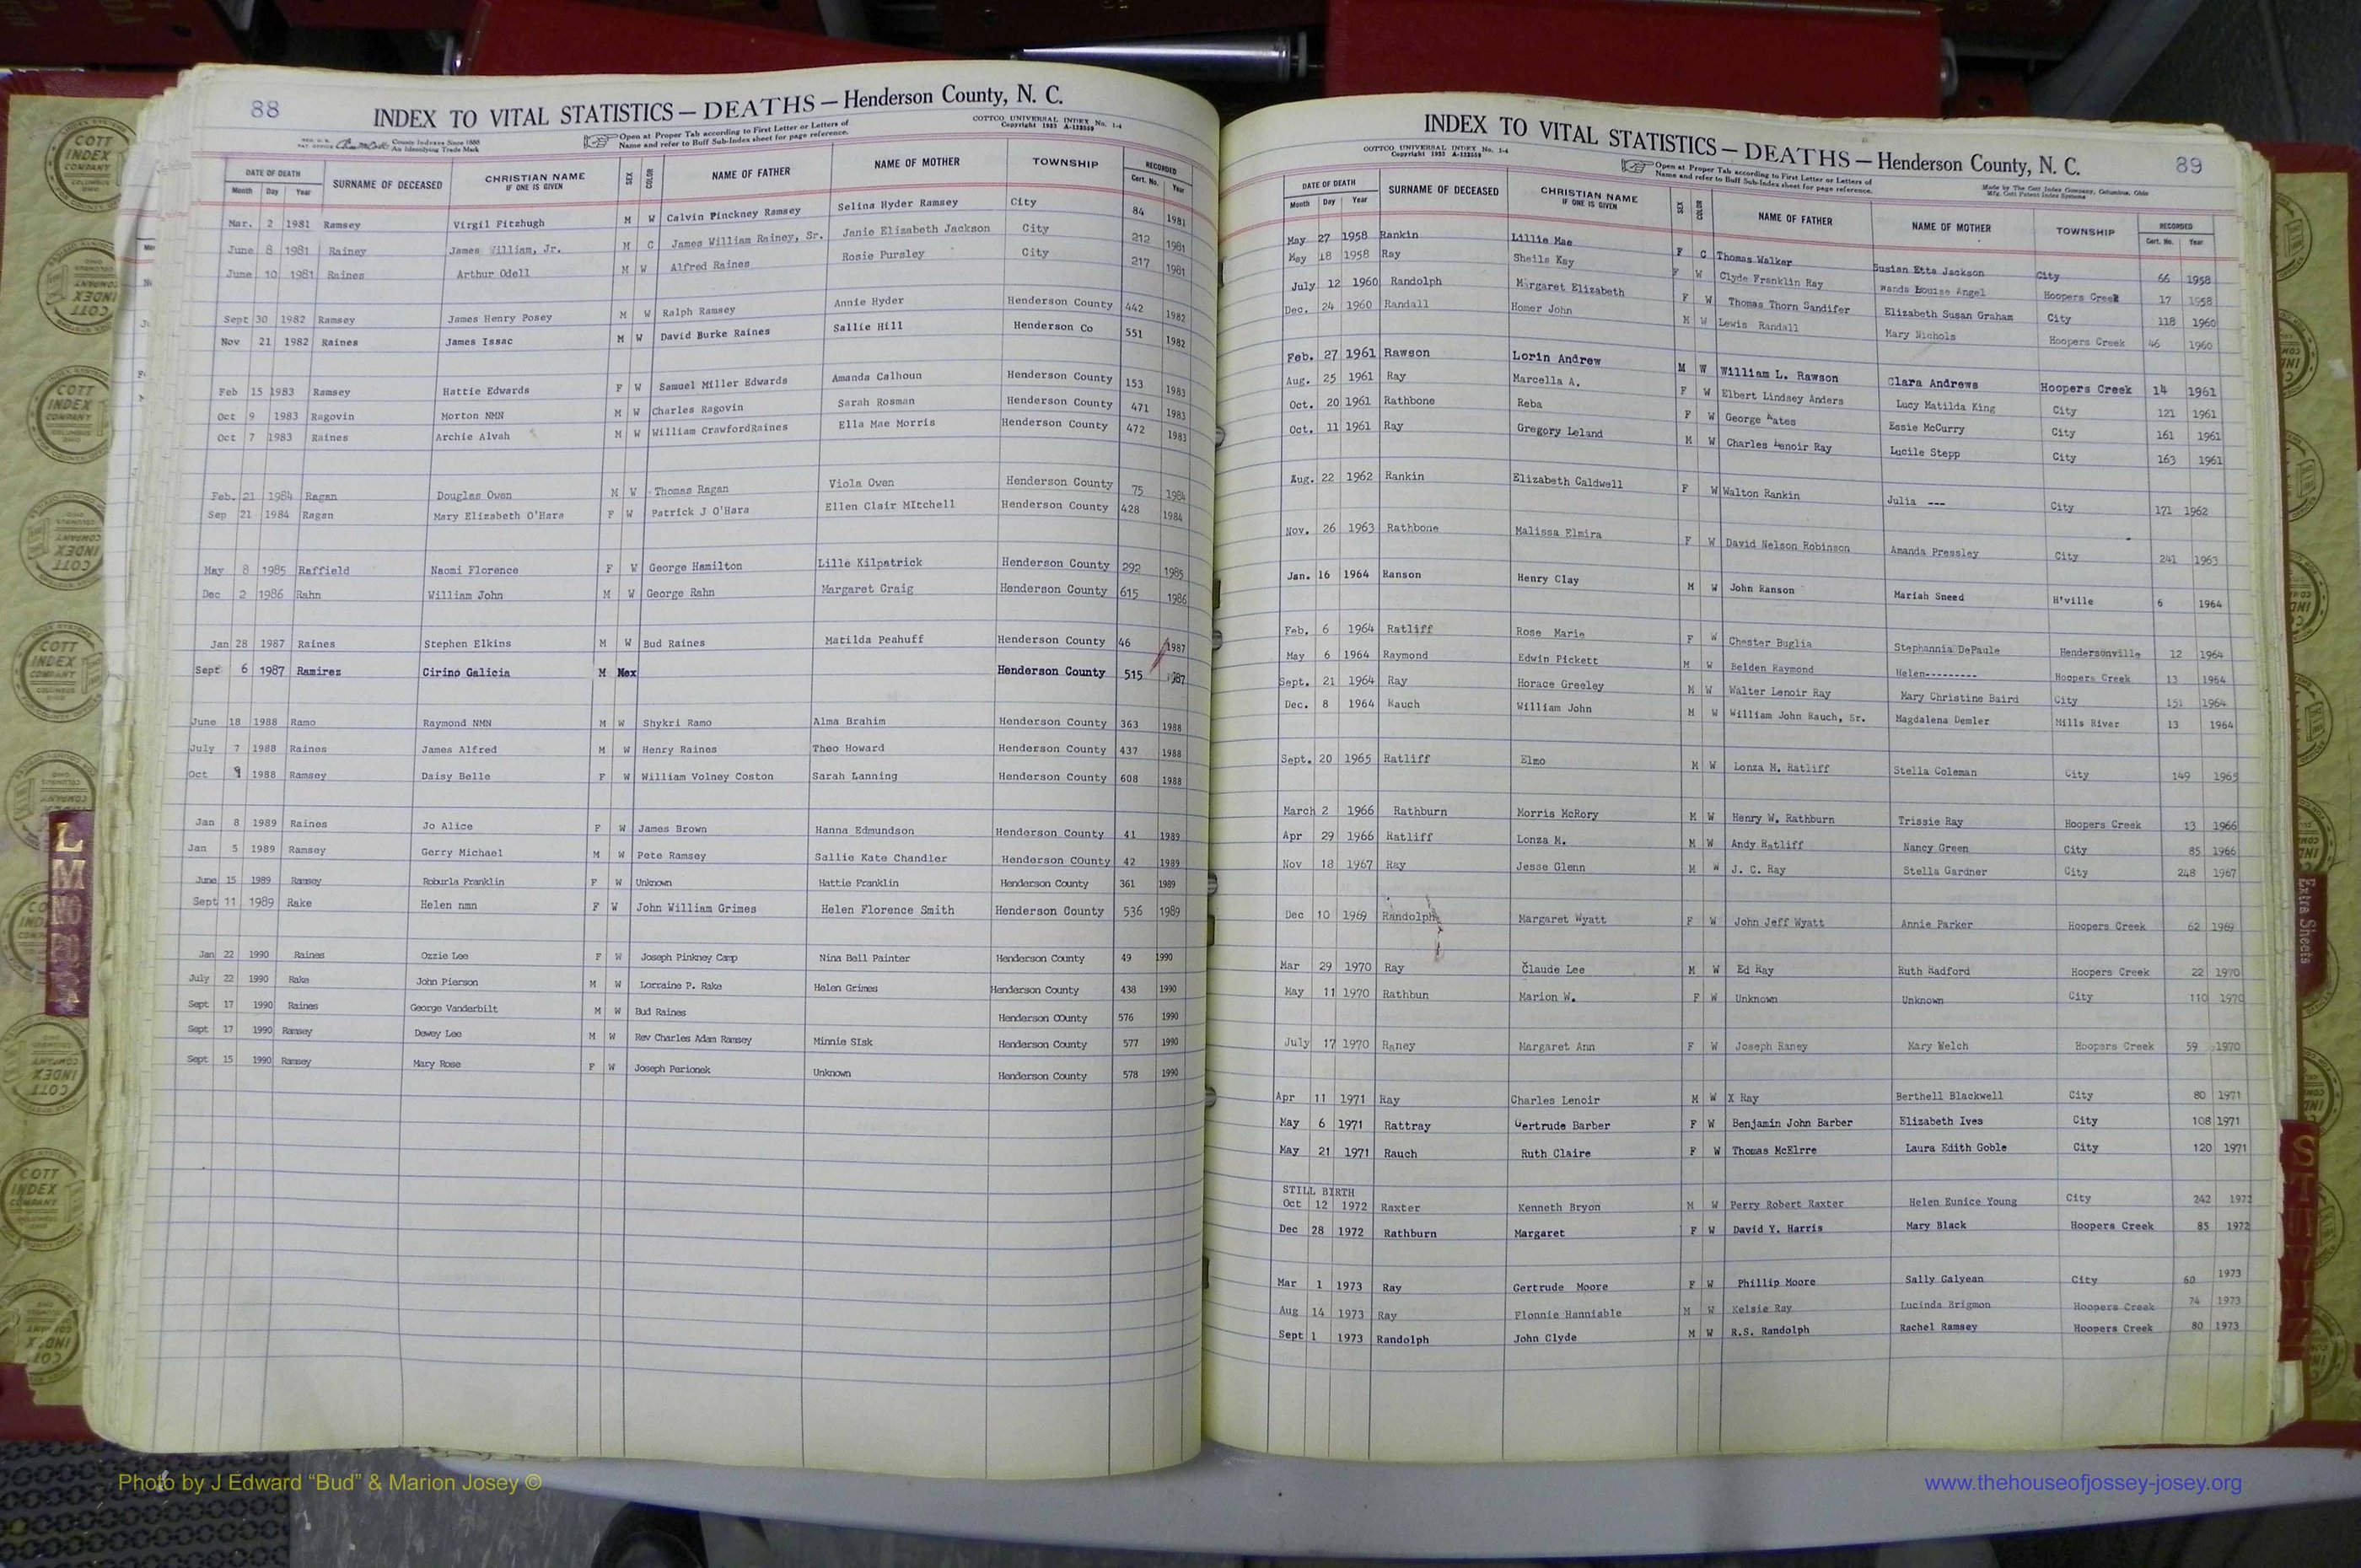 88
INDEX TO VITAL STATISTICS — DEATHS — Henderson County, N. C.
County Indexes Since 1888
An Identifying Trade Mark
Open at Proper Tab according to First Letter or Letters of
Name and refer to Buff Sub-Index sheet for page reference.
COTTCO UNIVERSAL INDEX No. 1-4
Copyright 1933 A-123559
DATE OF DEATH Month Day Year SURNAME OF DECEASED CHRISTIAN NAME IF ONE IS GIVEN SEX COLOR NAME OF FATHER NAME OF MOTHER TOWNSHIP RECORDED Cert. No. Year
Mar. 2 1981 Ramsey Virgil Fitzhugh M W Calvin Pinckney Ramsey Selina Hyder Ramsey City 84 1981
June 8 1981 Rainey James William, Jr. M C James William Rainey, Sr. Janie Elizabeth Jackson City 212 1981
June 10 1981 Raines Arthur Odell M W Alfred Raines Rosie Pursley City 217 1981
Sept 30 1982 Ramsey James Henry Posey M W Ralph Ramsey Annie Hyder Henderson County 442 1982
Nov 21 1982 Raines James Issac M W David Burke Raines Sallie Hill Henderson Co 551 1982
Feb 15 1983 Ramsey Hattie Edwards F W Samuel Miller Edwards Amanda Calhoun Henderson County 153 1983
Oct 9 1983 Ragovin Morton NMN M W Charles Ragovin Sarah Rosman Henderson County 471 1983
Oct 7 1983 Raines Archie Alvah M W William CrawfordRaines Ella Mae Morris Henderson County 472 1983
Feb. 21 1984 Ragan Douglas Owen M W Thomas Ragan Viola Owen Henderson County 75 1984
Sep 21 1984 Ragan Mary Elizabeth O'Hara F W Patrick J O'Hara Ellen Clair MItchell Henderson County 428 1984
May 8 1985 Raffield Naomi Florence F W George Hamilton Lille Kilpatrick Henderson County 292 1985
Dec 2 1986 Rahn William John M W George Rahn Margaret Craig Henderson County 615 1986
Jan 28 1987 Raines Stephen Elkins M W Bud Raines Matilda Peahuff Henderson County 46 1987
Sept 6 1987 Ramirez Cirino Galicia M Mex Henderson County 515 1987
June 18 1988 Ramo Raymond NMN M W Shykri Ramo Alma Brahim Henderson County 363 1988
July 7 1988 Raines James Alfred M W Henry Raines Theo Howard Henderson County 437 1988
Oct 9 1988 Ramsey Daisy Belle F W William Volney Coston Sarah Lanning Henderson County 608 1988
Jan 8 1989 Raines Jo Alice F W James Brown Hanna Edmundson Henderson County 41 1989
Jan 5 1989 Ramsey Gerry Michael M W Pete Ramsey Sallie Kate Chandler Henderson COunty 42 1989
June 15 1989 Ramsey Roburla Franklin F W Unknown Hattie Franklin Henderson County 361 1989
Sept 11 1989 Rake Helen nmn F W John William Grimes Helen Florence Smith Henderson County 536 1989
Jan 22 1990 Raines Ozzie Lee F W Joseph Pinkney Camp Nina Bell Painter Henderson County 49 1990
July 22 1990 Rake John Pierson M W Lorraine P. Rake Helen Grimes Henderson County 438 1990
Sept 17 1990 Raines George Vanderbilt M W Bud Raines Henderson COunty 576 1990
Sept 17 1990 Ramsey Dewey Lee M W Rev Charles Adam Ramsey Minnie SIsk Henderson County 577 1990
Sept 15 1990 Ramsey Mary Rose F W Joseph Perionek Unknown Henderson County 578 1990
INDEX TO VITAL STATISTICS — DEATHS — Henderson County, N. C.
89
COTTCO UNIVERSAL INDEX No. 1-4
Copyright 1933 A-123559
Open at Proper Tab according to First Letter or Letters of
Name and refer to Buff Sub-Index sheet for page reference.
Made by The Cott Index Company, Columbus, Ohio
Mfg. Cott Patent Index Systems
DATE OF DEATH Month Day Year SURNAME OF DECEASED CHRISTIAN NAME IF ONE IS GIVEN SEX COLOR NAME OF FATHER NAME OF MOTHER TOWNSHIP RECORDED Cert. No. Year
May 27 1958 Rankin Lillie Mae F C Thomas Walker Susian Etta Jackson City 66 1958
May 18 1958 Ray Sheila Kay F W Clyde Franklin Ray Wanda Louise Angel Hoopers Creek 17 1958
July 12 1960 Randolph Margaret Elizabeth F W Thomas Thorn Sandifer Elizabeth Susan Graham City 118 1960
Dec. 24 1960 Randall Homer John M W Lewis Randall Mary Nichols Hoopers Creek 46 1960
Feb. 27 1961 Rawson Lorin Andrew M W William L. Rawson Clara Andrews Hoopers Creek 14 1961
Aug. 25 1961 Ray Marcella A. F W Elbert Lindsey Anders Lucy Matilda King City 121 1961
Oct. 20 1961 Rathbone Reba F W George Bates Essie McCurry City 161 1961
Oct. 11 1961 Ray Gregory Leland M W Charles Lenoir Ray Lucile Stepp City 163 1961
Aug. 22 1962 Rankin Elizabeth Caldwell F W Walton Rankin Julia --- City 171 1962
Nov. 26 1963 Rathbone Malissa Elmira F W David Nelson Robinson Amanda Pressley City 241 1963
Jan. 16 1964 Ranson Henry Clay M W John Ranson Mariah Sneed H'ville 6 1964
Feb. 6 1964 Ratliff Rose Marie F W Chester Buglia Stephannia DePaule Hendersonville 12 1964
May 6 1964 Raymond Edwin Pickett M W Belden Raymond Helen--------- Hoopers Creek 13 1964
Sept. 21 1964 Ray Horace Greeley M W Walter Lenoir Ray Mary Christine Baird City 151 1964
Dec. 8 1964 Rauch William John M W William John Rauch, Sr. Magdalena Demler Mills River 13 1964
Sept. 20 1965 Ratliff Elmo M W Lonza M. Ratliff Stella Coleman City 149 1965
March 2 1966 Rathburn Morris McRory M W Henry W. Rathburn Trissie Ray Hoopers Creek 13 1966
Apr 29 1966 Ratliff Lonza M. M W Andy Ratliff Nancy Green City 85 1966
Nov 18 1967 Ray Jesse Glenn M W J. C. Ray Stella Gardner City 248 1967
Dec 10 1969 Randolph Margaret Wyatt F W John Jeff Wyatt Annie Parker Hoopers Creek 62 1969
Mar 29 1970 Ray Claude Lee M W Ed Ray Ruth Radford Hoopers Creek 22 1970
May 11 1970 Rathbun Marion W. F W Unknown Unknown City 110 1970
July 17 1970 Raney Margaret Ann F W Joseph Raney Mary Welch Hoopers Creek 59 1970
Apr 11 1971 Ray Charles Lenoir M W X Ray Berthell Blackwell City 80 1971
May 6 1971 Rattray Gertrude Barber F W Benjamin John Barber Elizabeth Ives City 108 1971
May 21 1971 Rauch Ruth Claire F W Thomas McElrre Laura Edith Goble City 120 1971
STILL BIRTH
Oct 12 1972 Raxter Kenneth Bryon M W Perry Robert Raxter Helen Eunice Young City 242 1972
Dec 28 1972 Rathburn Margaret F W David Y. Harris Mary Black Hoopers Creek 85 1972
Mar 1 1973 Ray Gertrude Moore F W Phillip Moore Sally Galyean City 60 1973
Aug 14 1973 Ray Flonnie Hanniable M W Kelsie Ray Lucinda Brigmon Hoopers Creek 74 1973
Sept 1 1973 Randolph John Clyde M W R.S. Randolph Rachel Ramsey Hoopers Creek 80 1973
COTT INDEX COMPANY
Extra Sheets
Photo by J Edward “Bud” & Marion Josey ©
www.thehouseofjossey-josey.org